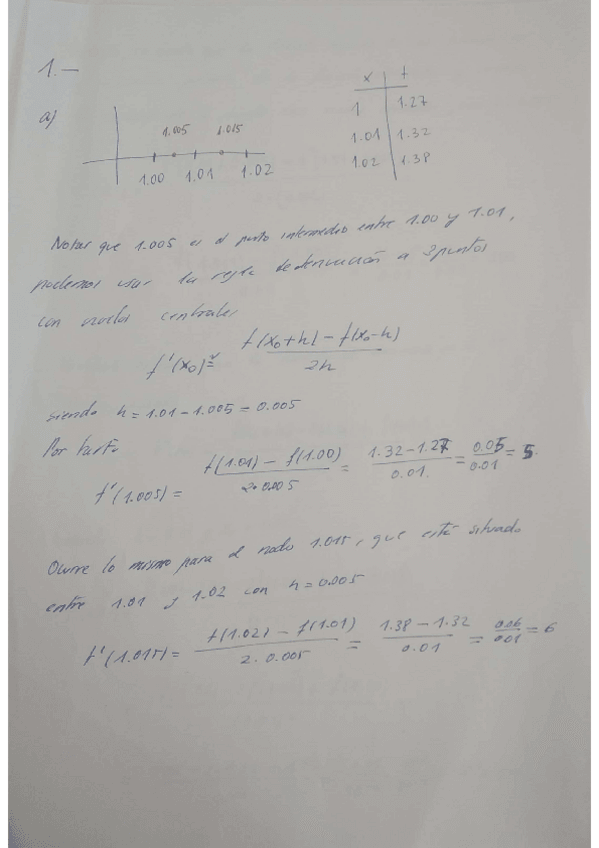 1.-
a)
x f
1 1.27
1.01 1.32
1.02 1.38
1.005 1.015
1.00 1.01 1.02
Notar que 1.005 es el punto intermedio entre 1.00 y 1.01,
podemos usar la regla de derivación a 2 puntos
con nodos centrales
f'(x₀) ≅ (f(x₀+h) - f(x₀-h)) / 2h
siendo h = 1.01 - 1.005 = 0.005
Por tanto
f'(1.005) = (f(1.01) - f(1.00)) / 2·0.005 = (1.32 - 1.27) / 0.01 = 0.05 / 0.01 = 5.
Ocurre lo mismo para el nodo 1.015, que está situado
entre 1.01 y 1.02 con h = 0.005
f'(1.015) = (f(1.02) - f(1.01)) / 2·0.005 = (1.38 - 1.32) / 0.01 = 0.06 / 0.01 = 6